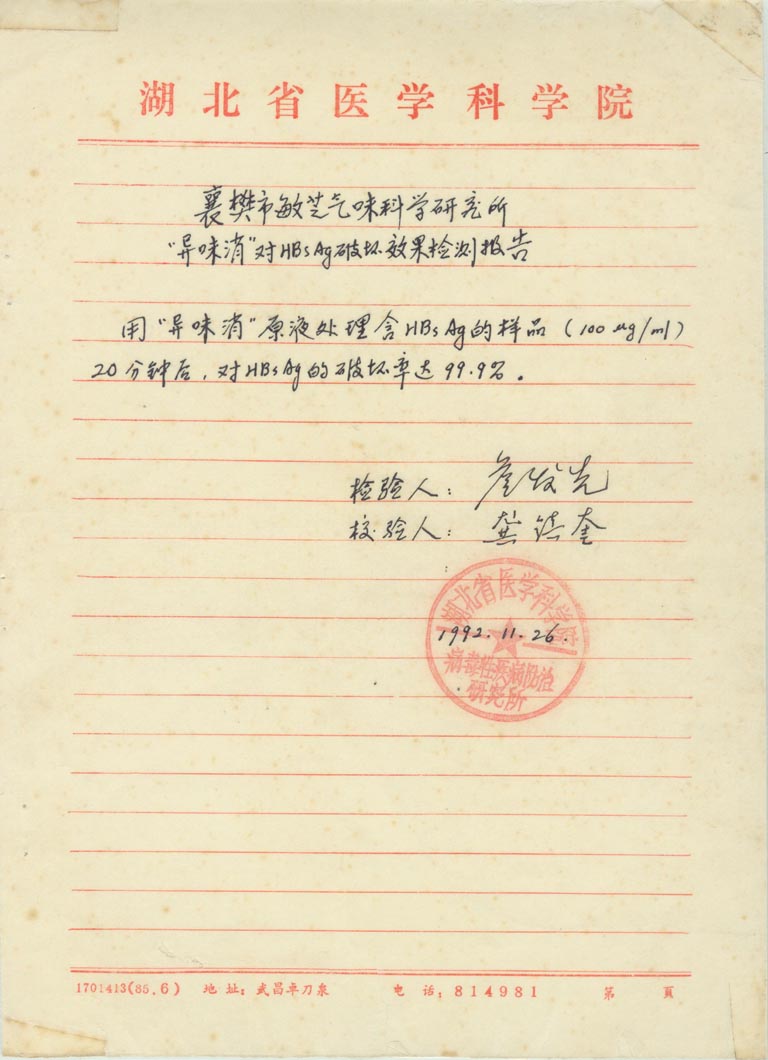 湖北省医学科学院
襄樊市敏芝气味科学研究所
“异味消”对HBsAg破坏效果检测报告
用“异味消”原液处理含HBsAg的样品(100μg/ml)
20分钟后,对HBsAg的破坏率达99.9%。
检验人:詹发先
校验人:龚镇奎
湖北省医学科学院
1992.11.26.
病毒性疾病防治
研究所
1701413(85.6) 地址:武昌卓刀泉 电话:814981 第 頁